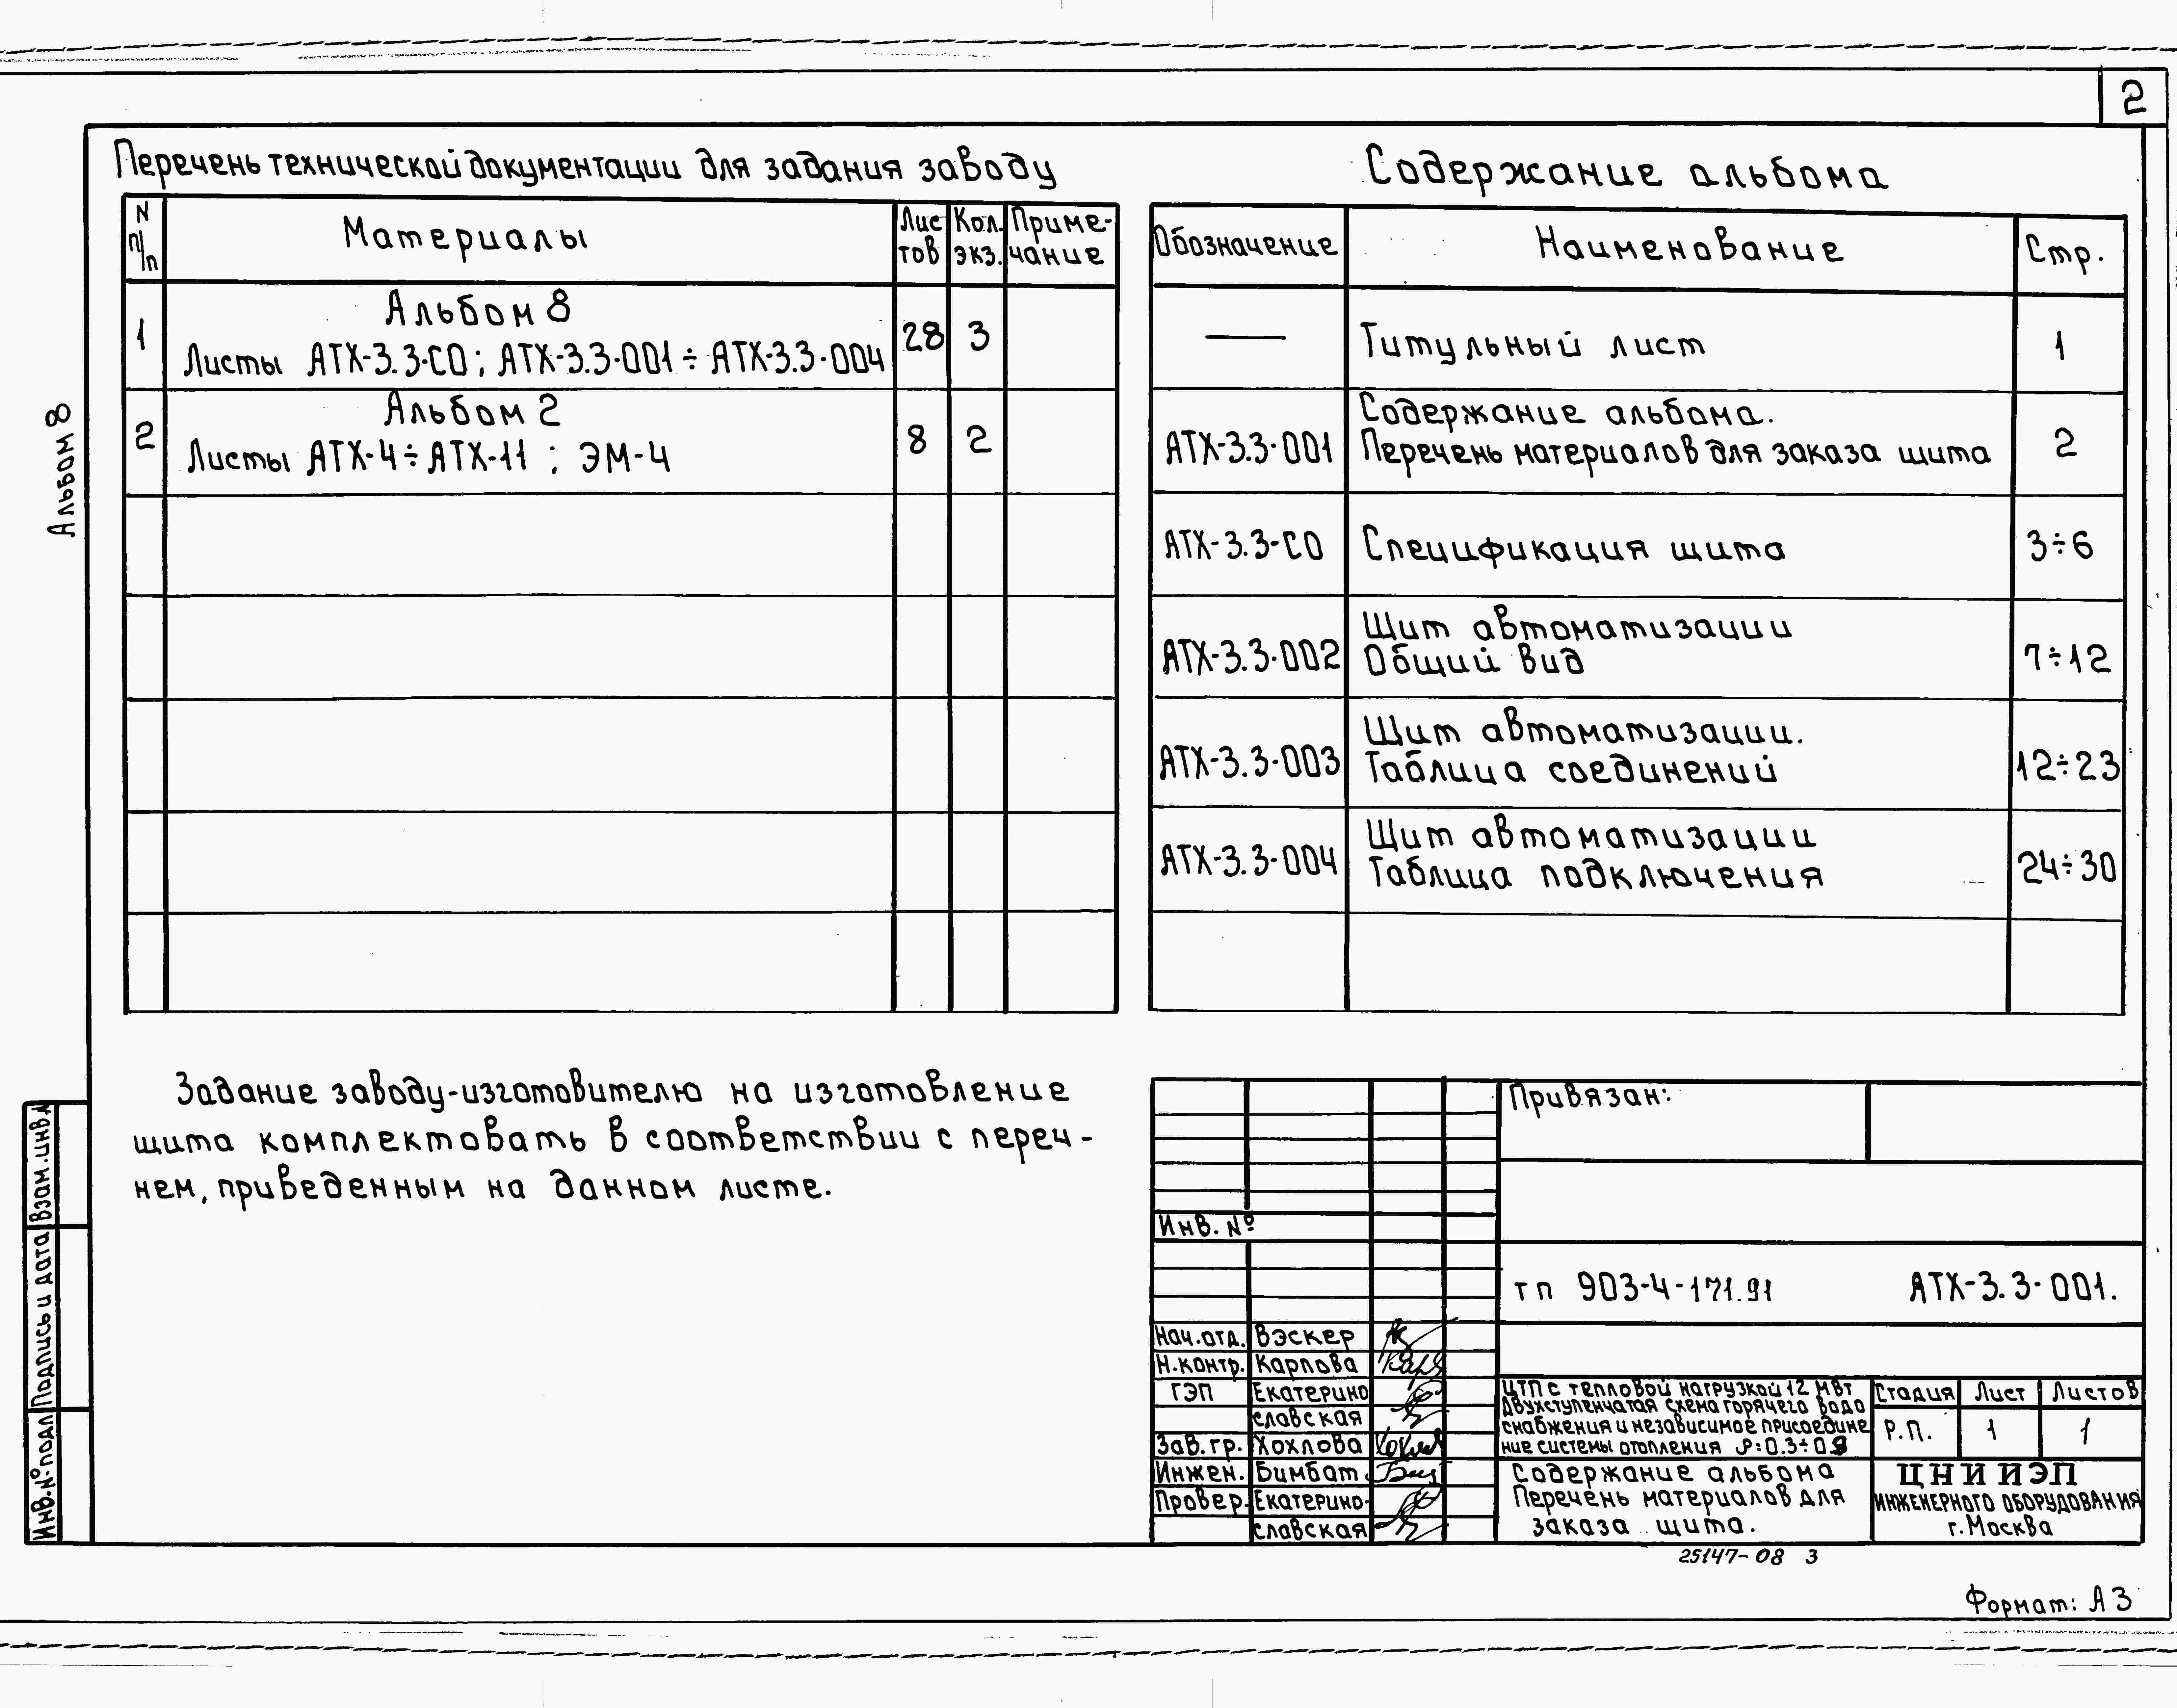 2
Альбом 8
Перечень технической документации для задания заводу
N п/п Материалы Лис тов Кол. экз. Приме- чание
1 Альбом 8
Листы АТХ-3.3-СО; АТХ-3.3-001 ÷ АТХ-3.3-004 28 3
2 Альбом 2
Листы АТХ-4 ÷ АТХ-11 ; ЭМ-4 8 2
Содержание альбома
Обозначение Наименование Стр.
— Титульный лист 1
АТХ-3.3-001 Содержание альбома.
Перечень материалов для заказа щита 2
АТХ-3.3-СО Спецификация щита 3÷6
АТХ-3.3-002 Щит автоматизации
Общий вид 7÷12
АТХ-3.3-003 Щит автоматизации.
Таблица соединений 12÷23
АТХ-3.3-004 Щит автоматизации
Таблица подключения 24÷30
Задание заводу-изготовителю на изготовление
щита комплектовать в соответствии с переч-
нем, приведенным на данном листе.
Взам.инв.
Подпись и дата
Инв.№ подл
Привязан:
Инв. №
тп 903-4-171.91 АТХ-3.3-001.
Нач.отд. Вэскер
Н.контр. Карпова
ГЭП Екатерино
славская
Зав.гр. Хохлова
Инжен. Бимбат
Провер. Екатерино-
славская
ЦТП с тепловой нагрузкой 12 МВт
Двухступенчатая схема горячего водо
снабжения и независимое присоедине
ние системы отопления
Стадия Лист Листов
Р.П. 1 1
Содержание альбома
Перечень материалов для
заказа щита.
ЦНИИЭП
ИНЖЕНЕРНОГО ОБОРУДОВАНИЯ
г.Москва
25147-08 3
Формат: А3